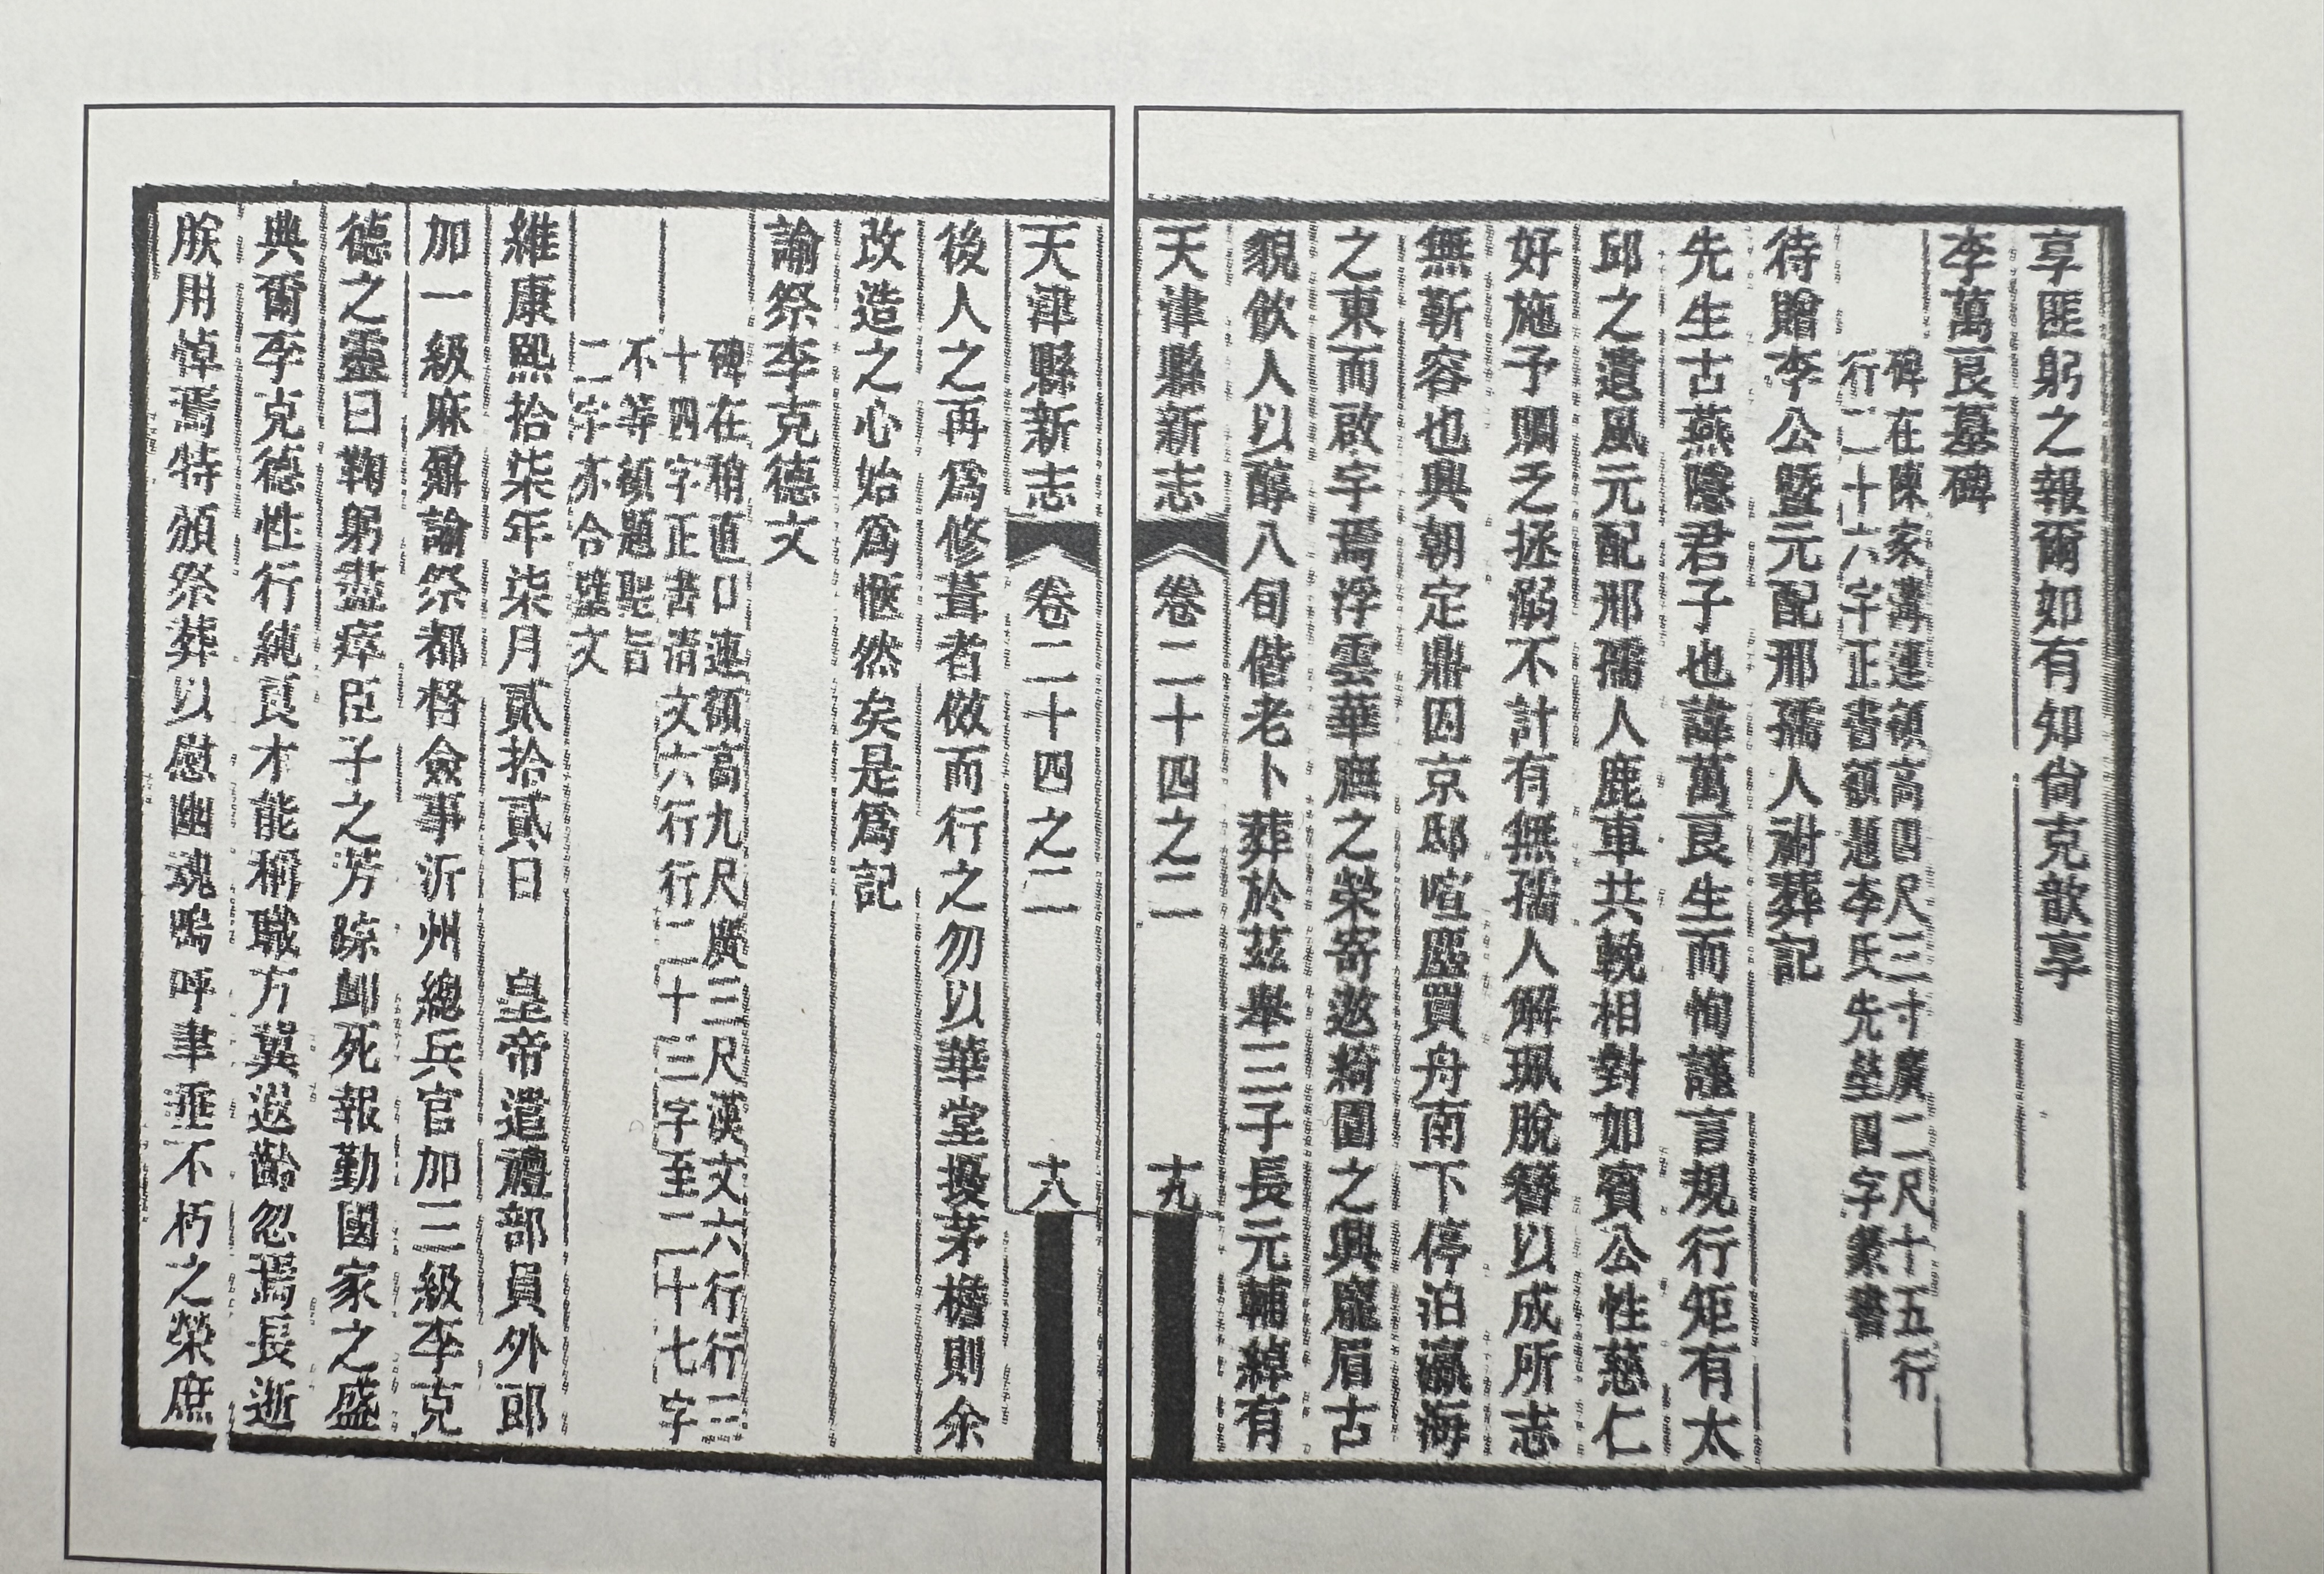 天津縣新志 卷二十四之二 十八
後人之再爲修葺者倣而行之勿以華堂擾茅檐則余
改造之心始爲愜然矣是爲記
諭祭李克德文
碑在稍直口連額高九尺廣三尺漢文六行行三
十四字正書淸文六行行二十三字至二十七字
不等額題聖旨
二字亦合璧文
維康熙拾柒年柒月貳拾貳日 皇帝遣禮部員外郎
加一級麻鼐諭祭都督僉事沂州總兵官加三級李克
德之靈曰鞠躬盡瘁臣子之芳蹤卹死報勤國家之盛
典爾李克德性行純良才能稱職方冀遐齡忽焉長逝
朕用悼焉特頒祭葬以慰幽魂嗚呼聿垂不朽之榮庶
享匪躬之報爾如有知尙克歆享
李萬良墓碑
碑在陳家溝連額高四尺三寸廣二尺十五行
行二十六字正書額題李氏先塋四字篆書
待贈李公曁元配邢孺人祔葬記
先生古燕隱君子也諱萬良生而恂謹言規行矩有太
邱之遺風元配邢孺人鹿車共輓相對如賓公性慈仁
好施予賙乏拯溺不計有無孺人解珮脫簪以成所志
無靳容也興朝定鼎因京邸喧塵買舟南下停泊瀛海
之東而啟宇焉浮雲華廡之榮寄遨綺園之興龐眉古
貌飲人以醇八旬偕老卜葬於茲舉三子長元輔綽有
天津縣新志 卷二十四之二 十九